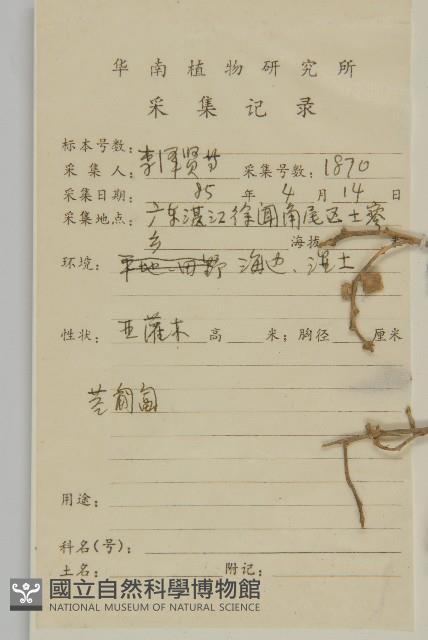 华南植物研究所
采集记录
标本号数:
采集人: 李泽贤等 采集号数: 1870
采集日期: 85 年 4 月 14 日
采集地点: 广东湛江徐闻角尾区土寮
乡 海拔 米
环境: 平地 田野 海边、湿土
性状: 亚灌木 高 米; 胸径 厘米
茎匍匐
用途:
科名(号):
土名: 附记:
國立自然科學博物館
NATIONAL MUSEUM OF NATURAL SCIENCE